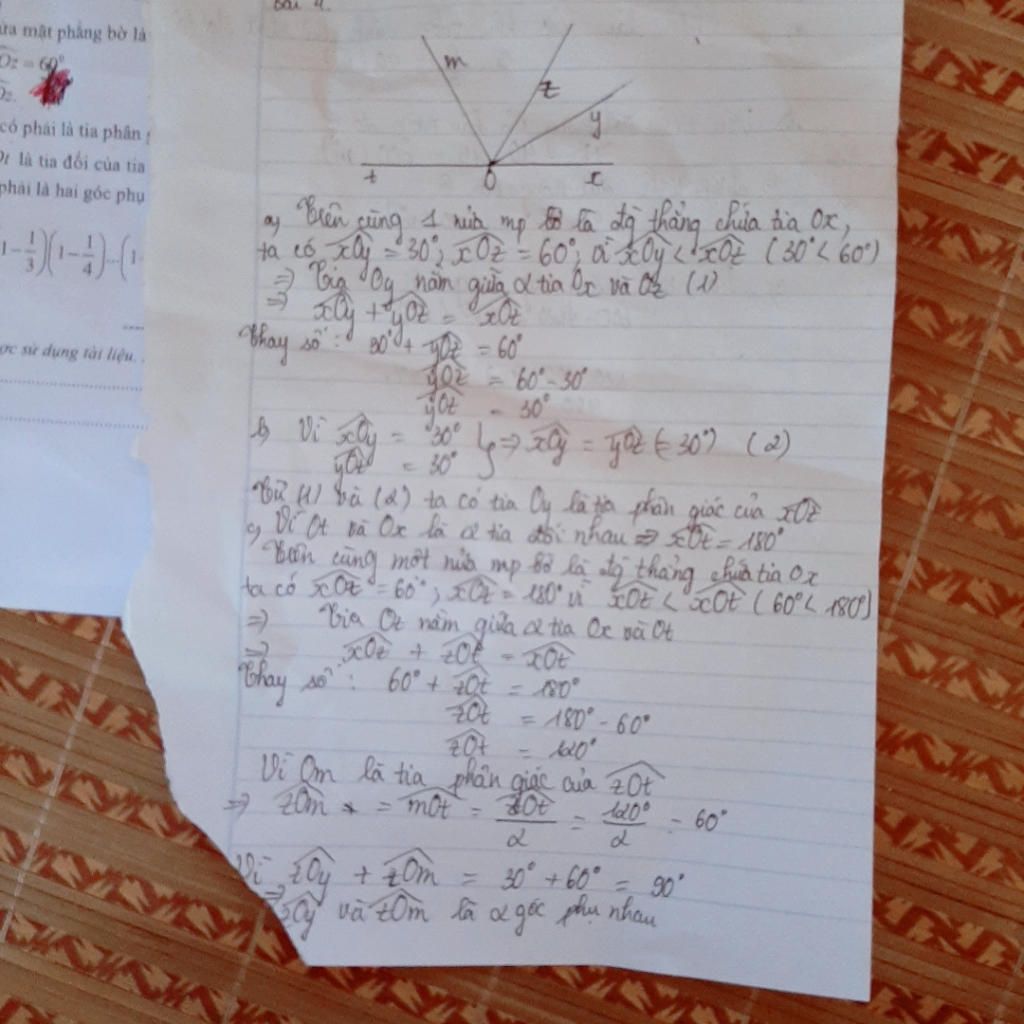 ửa mặt phẳng bờ là
Oz = 60°
Oz.
có phải là tia phân
Ot là tia đối của tia
phải là hai góc phụ
1 - 1/3)(1 - 1/4)...(1
ợc sử dụng tài liệu.
Bài 4.
m
z
y
t
O
x
a, Trên cùng 1 nửa mp bờ là đg thẳng chứa tia Ox,
ta có xOy = 30°; xOz = 60°; vì xOy < xOz (30° < 60°)
⇒ Tia Oy nằm giữa 2 tia Ox và Oz (1)
⇒ xOy + yOz = xOz
Thay số: 30° + yOz = 60°
yOz = 60° - 30°
yOz = 30°
b, Vì xOy = 30° } ⇒ xOy = yOz (= 30°) (2)
yOz = 30°
Từ (1) và (2) ta có tia Oy là tia phân giác của xOz
c, Vì Ot và Ox là 2 tia đối nhau ⇒ xOt = 180°
Trên cùng một nửa mp bờ là đg thẳng chứa tia Ox
ta có xOz = 60°; xOt = 180° vì xOz < xOt (60° < 180°)
⇒ Tia Oz nằm giữa 2 tia Ox và Ot
⇒ xOz + zOt = xOt
Thay số: 60° + zOt = 180°
zOt = 180° - 60°
zOt = 120°
Vì Om là tia phân giác của zOt
⇒ zOm = mOt = zOt/2 = 120°/2 = 60°
Vì zOy + zOm = 30° + 60° = 90°
⇒ zOy và zOm là 2 góc phụ nhau